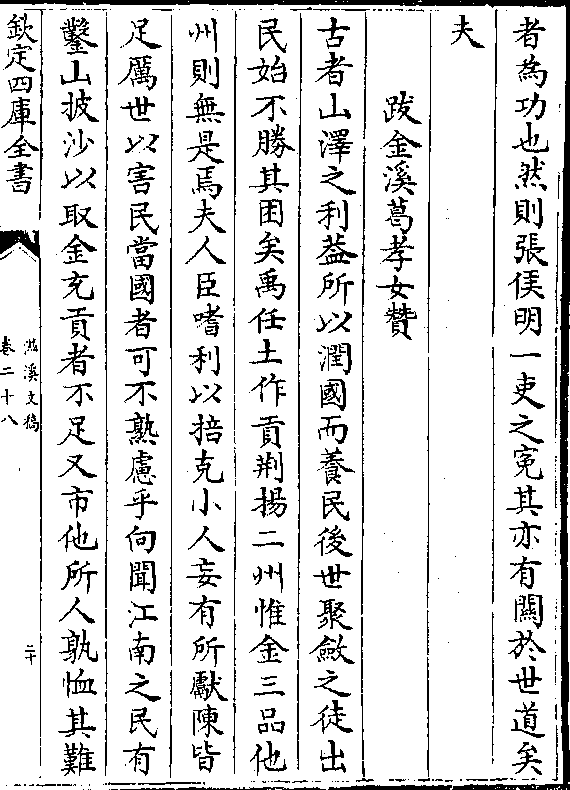 者為功也然則張侯明一吏之寃其亦有關於世道矣
夫
跋金溪葛孝女贊
古者山澤之利益所以潤國而養民後世聚斂之徒出
民始不勝其困矣禹任土作貢荆揚二州惟金三品他
州則無是焉夫人臣嗜利以掊克小人妄有所獻陳皆
足厲世以害民當國者可不熟慮乎向聞江南之民有
鑿山披沙以取金充貢者不足又市他所人孰恤其難
欽定四庫全書
溪文稿
卷二十八
二十